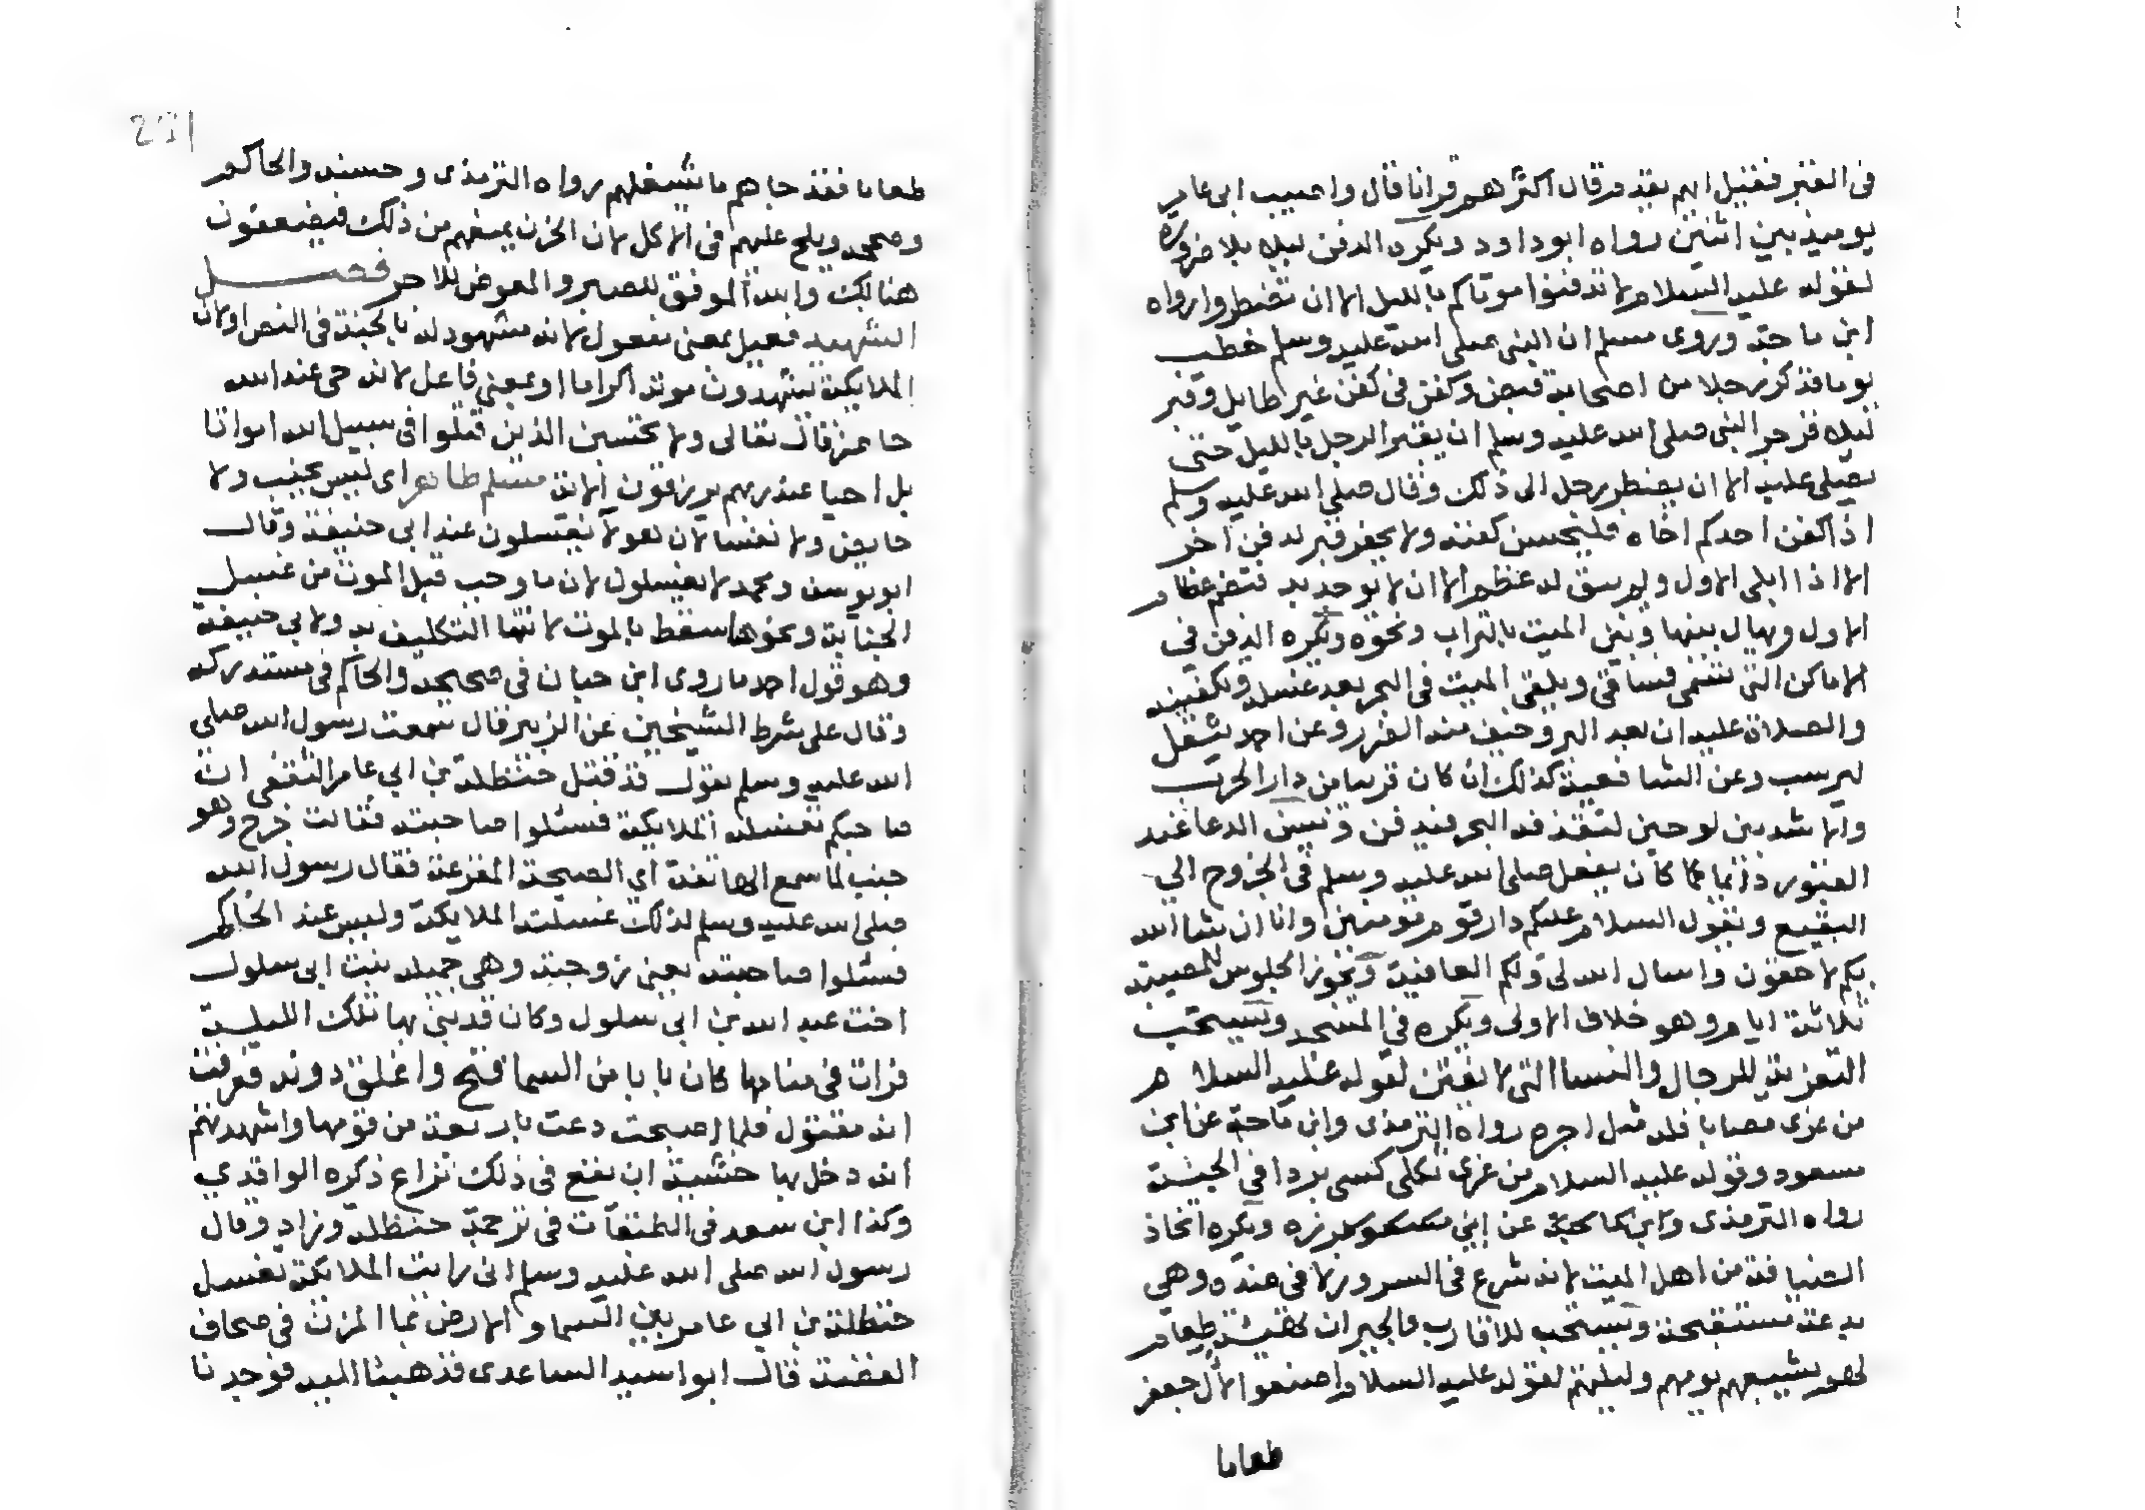 في القبر فقيل ايهم يقدم قال اكثرهم قرانا قال واصيب ابي عامر
يوميذ بين اثنين رواه ابو داود ويكره الدفن ليلا بلا ضرورة
لقوله عليه السلام لا تدفنوا موتاكم بالليل الا ان تضطروا رواه
ابن ماجة وروى مسلم ان النبي صلى الله عليه وسلم خطب
يوما فذكر رجلا من اصحابه قبض وكفن في كفن غير طايل وقبر
ليلا فزجر النبي صلى الله عليه وسلم ان يقبر الرجل بالليل حتى
يصلى عليه الا ان يضطر رجل الى ذلك وقال صلى الله عليه وسلم
اذا كفن احدكم اخاه فليحسن كفنه ولا يحفر قبر لدفن اخر
الا اذا ابلى الاول ولم يبق له عظم الا ان لا يوجد بد فتضم عظام
الاول ويهال بينها وبين الميت بالتراب ونحوه ويكره الدفن في
الاماكن التي تسمى فساقي ويلقى الميت في البحر بعد غسله وتكفينه
والصلاة عليه ان بعد البر وخيف منه الضرر وعن احمد يثقل
ليرسب وعن الشافعية كذلك ان كان قريبا من دار الحرب
والا شد بين لوحين ليقذفه البحر فيدفن ويسن الدعا عند
القبور قايما كما كان يفعل صلى الله عليه وسلم في الخروج الي
البقيع ويقول السلام عليكم دار قوم مومنين وانا ان شا الله
بكم لاحقون واسال الله لي ولكم العافية ويجوز الجلوس للمصيبة
ثلاثة ايام وهو خلاف الاولى ويكره في المسجد ويستحب
التعزية للرجال والنسا اللاتي لا يفتن لقوله عليه السلام
من عزى مصابا فله مثل اجره رواه الترمذي وابن ماجة عن ابن
مسعود وقوله عليه السلام من عزى ثكلى كسى بردا في الجنة
رواه الترمذي عن ابي برزه ويكره اتخاذ
الضيافة من اهل الميت لانه شرع في السرور لا في ضده وهي
بدعة مستقبحة ويستحب للاقارب والجيران تهيئة طعام
لهم يشبعهم يومهم وليلتهم لقوله عليه السلام اصنعوا لال جعفر
طعاما
طعاما فقد جاهم ما يشغلهم رواه الترمذي وحسنه والحاكم
وصححه ويلح عليهم في الاكل لان الحزن يمنعهم من ذلك فيضعفون
هنالك والله الموفق للصبر والمعوض للاجر فصل
الشهيد فعيل بمعنى مفعول لانه مشهود له بالجنة في النص او لان
الملايكة يشهدون موته اكراما او بمعنى فاعل لانه حي عند الله
حاضر قال تعالى ولا تحسبن الذين قتلوا في سبيل الله امواتا
بل احيا عند ربهم يرزقون الاية مسلم طاهر اى ليس بجنب ولا
حايض ولا نفسا لان هولا يغسلون عند ابي حنيفة وقال
ابو يوسف ومحمد لا يغسلون لان ما وجب قبل الموت من غسل
الجنابة ونحوها سقط بالموت لانتها التكليف به ولابي حنيفة
وهو قول احمد ما روى ابن حبان في صحيحه والحاكم في مستدركه
وقال على شرط الشيخين عن الزبير قال سمعت رسول الله صلى
الله عليه وسلم يقول قد قتل حنظلة بن ابي عامر الثقفي ان
صاحبكم تغسله الملايكة فسئلوا صاحبته فقالت خرج وهو
جنب لما سمع الهايعة اي الصيحة المفزعة فقال رسول الله
صلى الله عليه وسلم لذلك غسلته الملايكة وليس عند الحاكم
فسئلوا صاحبته يعني زوجته وهي جميلة بنت ابي سلول
اخت عبد الله بن ابي سلول وكان قد بنى بها تلك الليلة
فرات في منامها كان بابا من السما فتح واغلق دونه فعرفت
انه مقتول فلما اصبحت دعت باربعة من قومها واشهدتهم
انه دخل بها خشية ان يقع في ذلك نزاع ذكره الواقدي
وكذا ابن سعد في الطبقات في ترجمة حنظلة وزاد وقال
رسول الله صلى الله عليه وسلم اني رايت الملايكة تغسل
حنظلة بن ابي عامر بين السما والارض بما المزن في صحاف
الفضة قال ابو اسيد الساعدى فذهبنا اليه فوجدنا